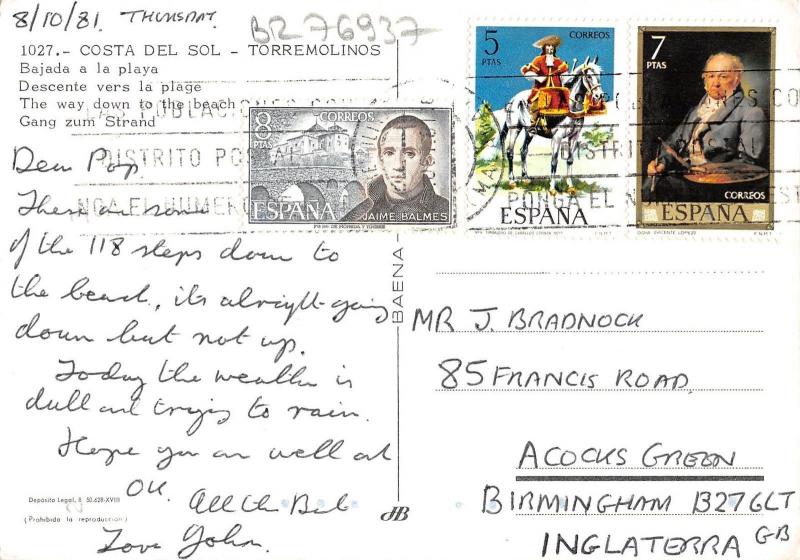 8/10/81. THURSDAY.
BR76937
1027.- COSTA DEL SOL - TORREMOLINOS
Bajada a la playa
Descente vers la plage
The way down to the beach
Gang zum Strand
8 PTAS
CORREOS
ESPAÑA
JAIME BALMES
5 PTAS
CORREOS
ESPAÑA
7 PTAS
CORREOS
ESPAÑA
F.N.M.T.
POBLACIONES CO
DISTRITO POSTAL
PONGA EL NUMERO
Dear Pop,
These are some
of the 118 steps down to
the beach, its alright going
down but not up.
Today the weather is
dull and trying to rain.
Hope you are well and
OK.
All the Best
Love John.
BAENA
MR J. BRADNOCK
85 FRANCIS ROAD,
ACOCKS GREEN
BIRMINGHAM B27 6LT
INGLATERRA GB
Depósito Legal, B. 50.628-XVIII
(Prohibida la reproducción)